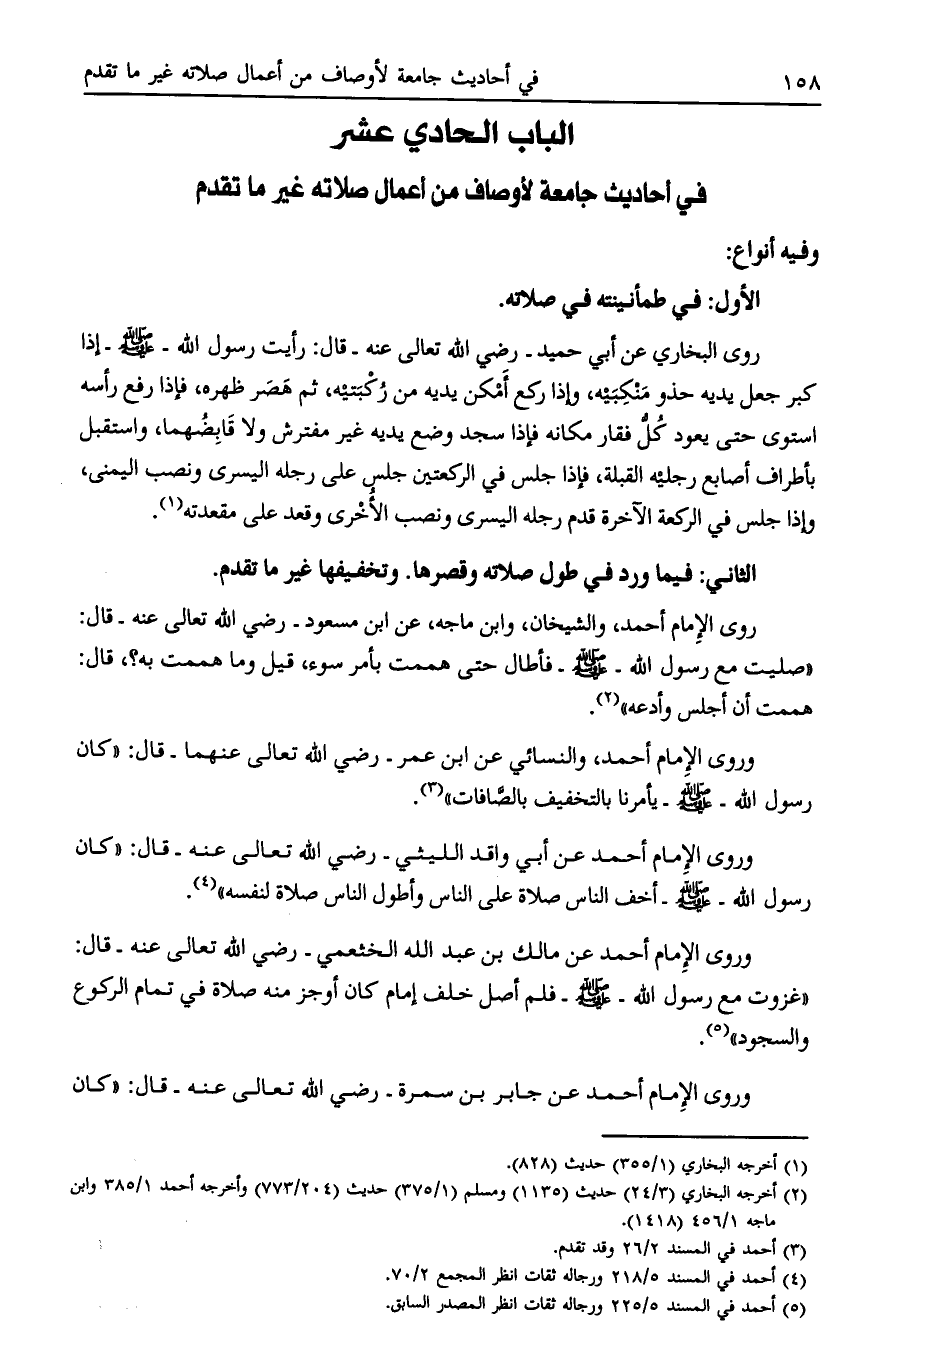 ١٥٨ في أحاديث جامعة لأوصاف من أعمال صلاته غير ما تقدم
الباب الحادي عشر
في أحاديث جامعة لأوصاف من أعمال صلاته غير ما تقدم
وفيه أنواع:
الأول: في طمأنينته في صلاته.
روى البخاري عن أبي حميد ـ رضي الله تعالى عنه ـ قال: رأيت رسول الله ـ ﷺ ـ إذا
كبر جعل يديه حذو مَنْكِبَيْه، وإذا ركع أَمْكن يديه من رُكْبَتيْه، ثم هَصَر ظهره، فإذا رفع رأسه
استوى حتى يعود كُلُّ فقار مكانه فإذا سجد وضع يديه غير مفترش ولا قَابِضُهما، واستقبل
بأطراف أصابع رجليْه القبلة، فإذا جلس في الركعتين جلس على رجله اليسرى ونصب اليمنى،
وإذا جلس في الركعة الآخرة قدم رجله اليسرى ونصب الأُخْرى وقعد على مقعدته(١).
الثاني: فيما ورد في طول صلاته وقصرها. وتخفيفها غير ما تقدم.
روى الإِمام أحمد، والشيخان، وابن ماجه، عن ابن مسعود ـ رضي الله تعالى عنه ـ قال:
«صليت مع رسول الله ـ ﷺ ـ فأطال حتى هممت بأمر سوء، قيل وما هممت به؟، قال:
هممت أن أجلس وأدعه»(٢).
وروى الإِمام أحمد، والنسائي عن ابن عمر ـ رضي الله تعالى عنهما ـ قال: «كان
رسول الله ـ ﷺ ـ يأمرنا بالتخفيف بالصَّافات»(٣).
وروى الإِمام أحمد عن أبي واقد الليثي ـ رضي الله تعالى عنه ـ قال: «كان
رسول الله ـ ﷺ ـ أخف الناس صلاة على الناس وأطول الناس صلاة لنفسه»(٤).
وروى الإِمام أحمد عن مالك بن عبد الله الخثعمي ـ رضي الله تعالى عنه ـ قال:
«غزوت مع رسول الله ـ ﷺ ـ فلم أصل خلف إمام كان أوجز منه صلاة في تمام الركوع
والسجود»(٥).
وروى الإِمام أحمد عن جابر بن سمرة ـ رضي الله تعالى عنه ـ قال: «كان
(١) أخرجه البخاري (٣٥٥/١) حديث (٨٢٨).
(٢) أخرجه البخاري (٢٤/٣) حديث (١١٣٥) ومسلم (٣٧٥/١) حديث (٧٧٣/٢٠٤) وأخرجه أحمد ٣٨٥/١ وابن
ماجه ٤٥٦/١ (١٤١٨).
(٣) أحمد في المسند ٢٦/٢ وقد تقدم.
(٤) أحمد في المسند ٢١٨/٥ ورجاله ثقات انظر المجمع ٧٠/٢.
(٥) أحمد في المسند ٢٢٥/٥ ورجاله ثقات انظر المصدر السابق.